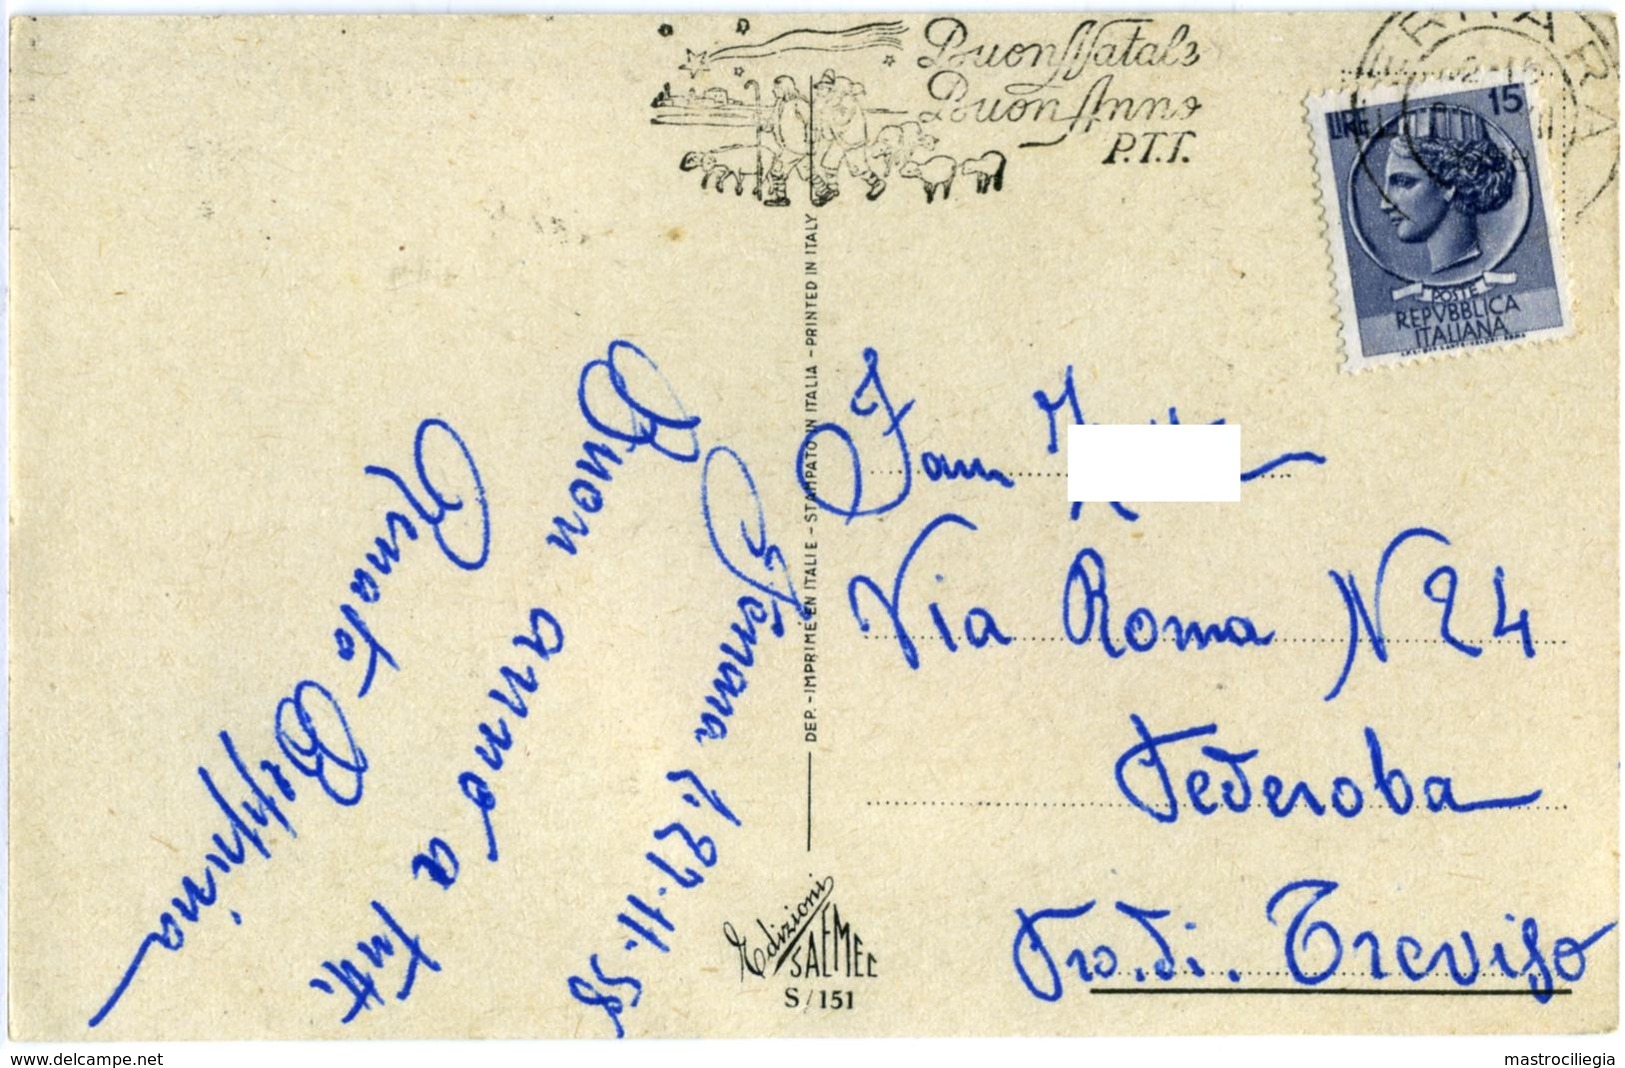 Buon Natale
Buon Anno
P.T.T.
LIRE 15
POSTE
REPVBBLICA
ITALIANA
Ferrara l. 27.11.58
Buon anno a tutti
Renato Beppina
DEP. - IMPRIME EN ITALIE - STAMPATO IN ITALIA - PRINTED IN ITALY
Edizioni
SAEMEC
S/151
Fam
Via Roma N 24
Pederoba
Pro. di. Treviso
www.delcampe.net
mastrociliegia